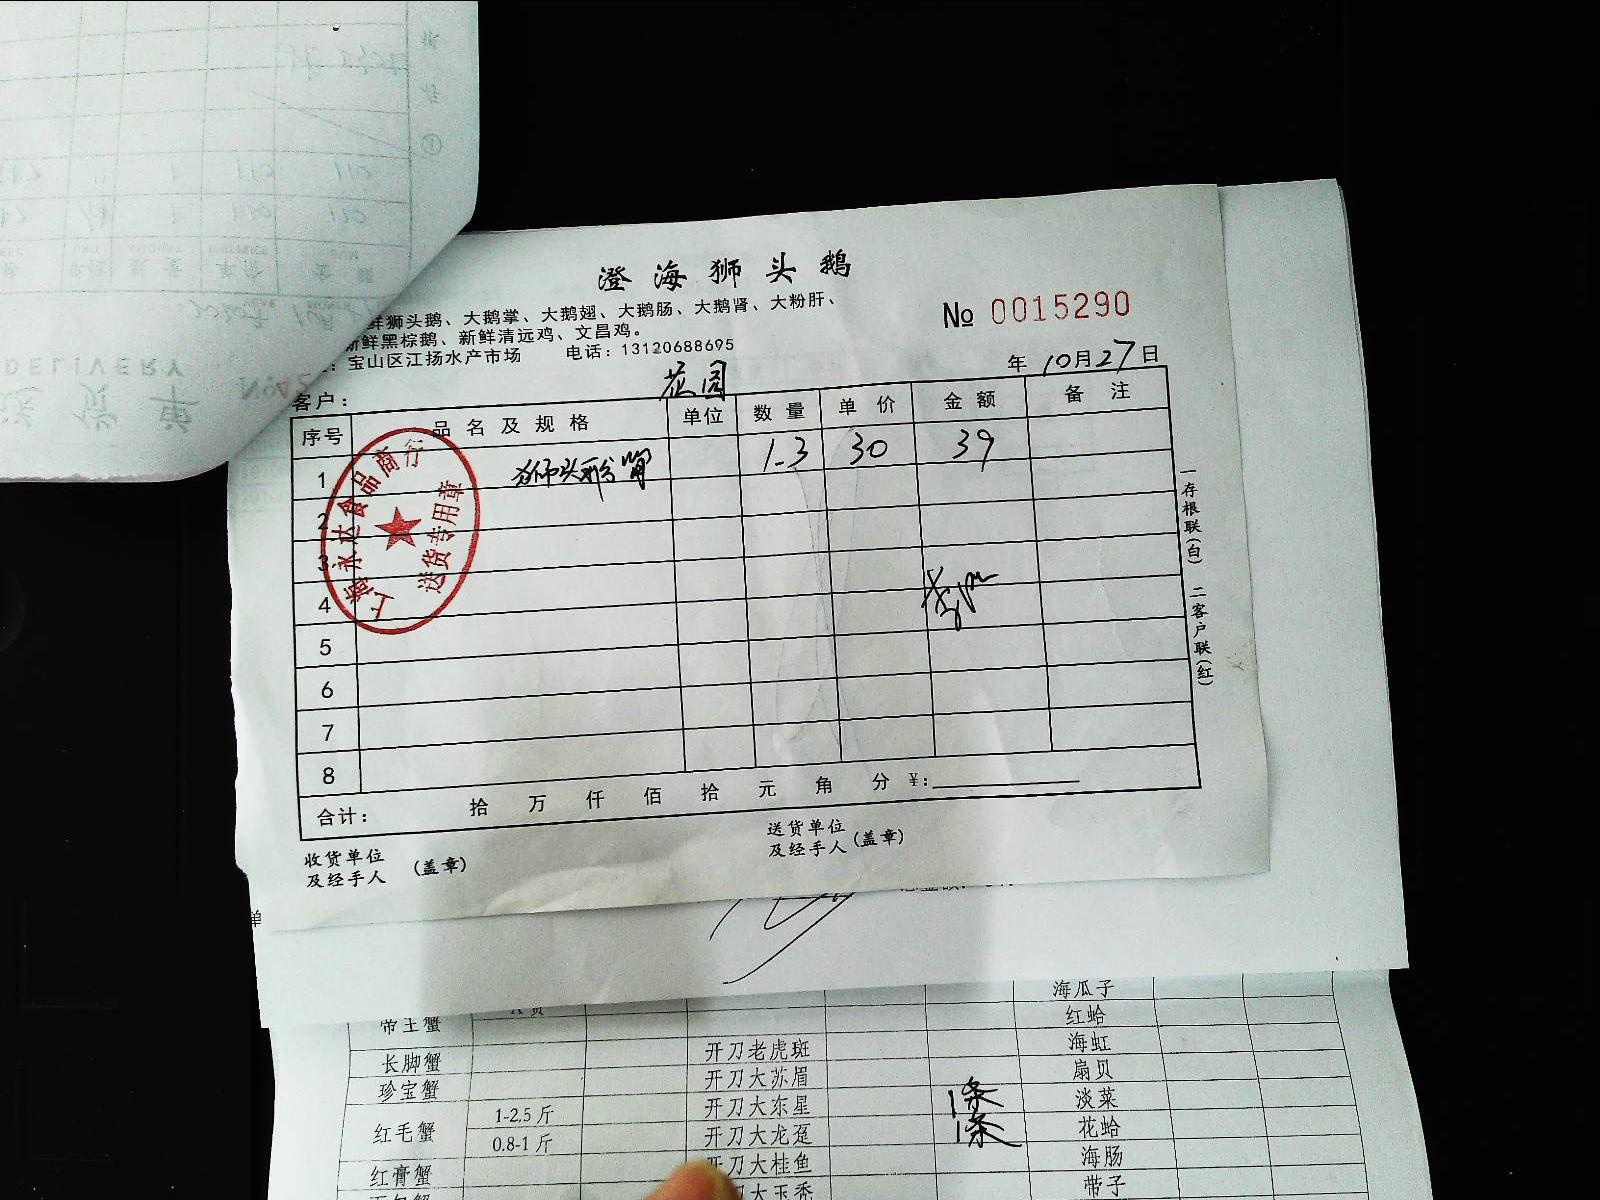 澄海狮头鹅
鲜狮头鹅、大鹅掌、大鹅翅、大鹅肠、大鹅肾、大粉肝、
新鲜黑棕鹅、新鲜清远鸡、文昌鸡。
宝山区江扬水产市场 电话：13120688695
№ 0015290
年 10月27日
客户： 花园
序号 品名及规格 单位 数量 单价 金额 备注
1 狮头 1.3 30 39
2
3
4
5
6
7
8
合计： 拾 万 仟 佰 拾 元 角 分 ¥:
收货单位
及经手人 (盖章)
送货单位
及经手人 (盖章)
一存根联(白) 二客户联(红)
上海永达食品商行
送货专用章
DELIVERY
送货单
单
海瓜子
帝王蟹 红蛤
长脚蟹 开刀老虎斑 海虹
珍宝蟹 开刀大苏眉 扇贝
红毛蟹 1-2.5斤 开刀大东星 1条 淡菜
0.8-1斤 开刀大龙趸 1条 花蛤
红膏蟹 开刀大桂鱼 海肠
带子